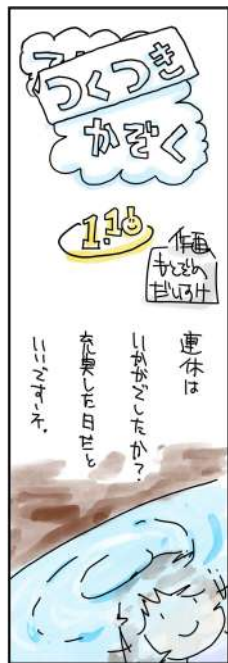 つくつき
かぞく
1.16
作画
もとぞの
だいすけ
連休は
いかがでしたか？
充実した日だと
いいですネ。